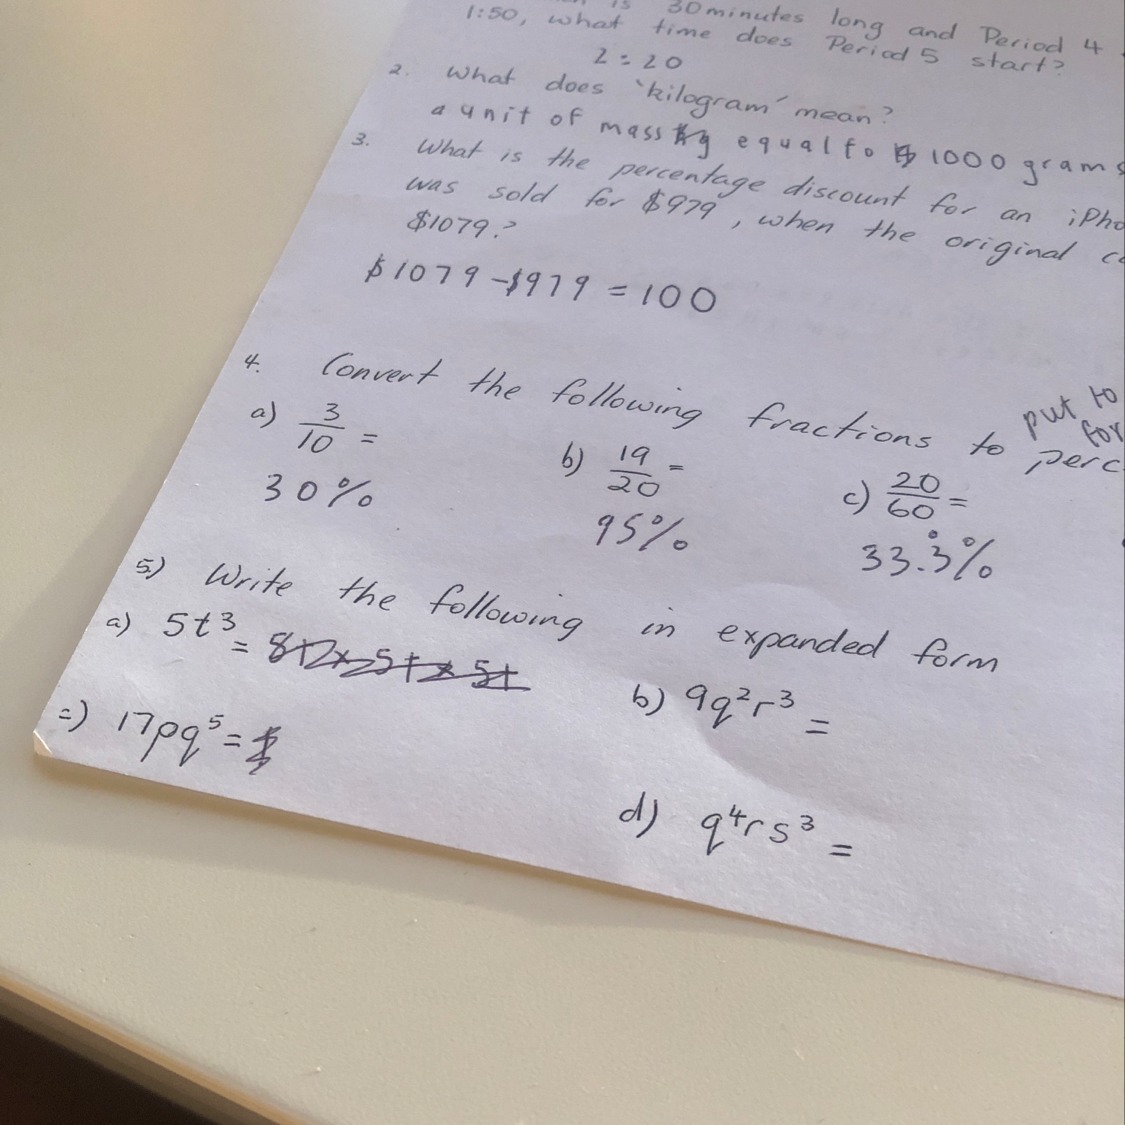 is 30 minutes long and Period 4
1:50, what time does Period 5 start?
2:20
2. What does 'kilogram' mean?
a unit of mass equal to 1000 grams
3. What is the percentage discount for an iPho
was sold for $979, when the original co
$1079?
$1079 - $979 = 100
4. Convert the following fractions to perc
put to
for
a) 3/10 = b) 19/20 = c) 20/60 =
30% 95% 33.3̇%
5.) Write the following in expanded form
a) 5t³ =
b) 9q²r³ =
c) 17pq⁵ =
d) q⁴rs³ =